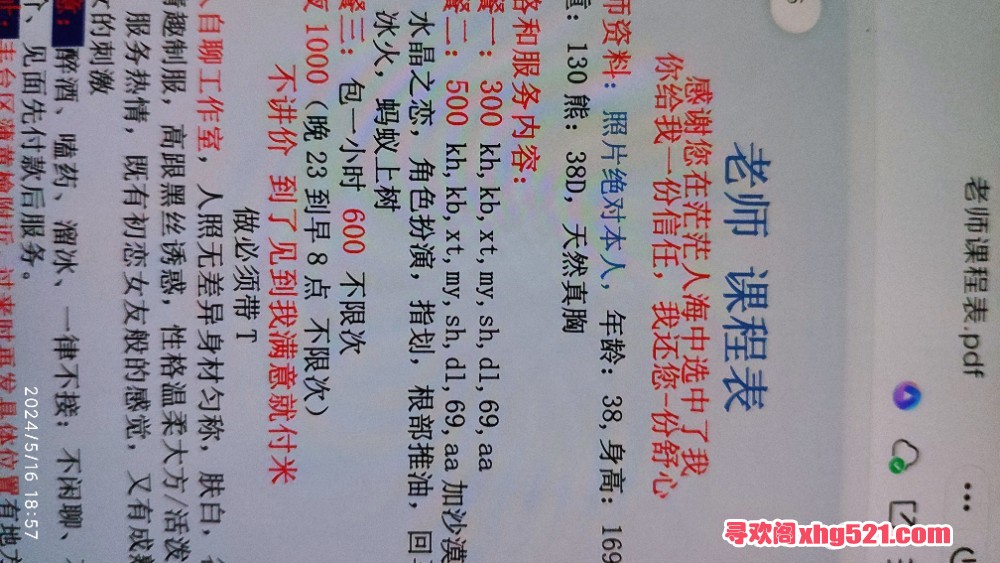 老师课程表.pdf
老师 课程表
感谢您在茫茫人海中选中了我
你给我一份信任，我还您一份舒心
师资料：照片绝对本人，年龄：38,身高：169
130 熊：38D，天然真胸
格和服务内容：
餐一：300 kh,kb,xt,my,sh,dl,69,aa
餐二：500 kh,kb,xt,my,sh,dl,69,aa 加沙漠
水晶之恋，角色扮演，指划，根部推油，回
冰火，蚂蚁上树
餐三：包一小时 600 不限次
夜 1000（晚 23 到早 8 点 不限次）
不讲价 到了见到我满意就付米
做必须带 T
人自聊工作室，人照无差异身材匀称，肤白，
情趣制服，高跟黑丝诱惑，性格温柔大方/活泼
服务热情，既有初恋女友般的感觉，又有成熟
的刺激
意：醉酒、嗑药、溜冰、一律不接；不闲聊、
见面先付款后服务。
丰台区蒲黄榆附近，过来时再发具体位置有地方
2024/5/16 18:57
寻欢阁xhg521.com